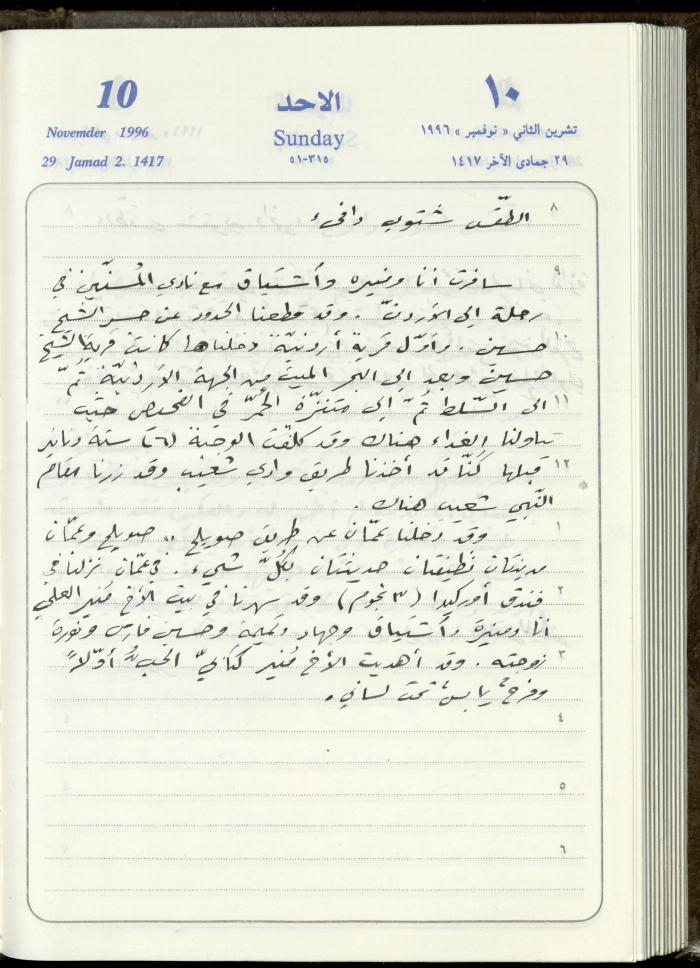 10
November 1996
29 Jamad 2. 1417
الاحد
Sunday
٣١٥-٥١
١٠
تشرين الثاني « نوفمبر » ١٩٩٦
٢٩ جمادى الآخر ١٤١٧
٨ الطّقس شتوي دافىء
٩
سافرت أنا ومنيره وأشتياق مع نادي المُسنّين في
رحلة إلى الأردنّ . وقد قطعنا الحدود عن جسر الشيخ
١٠ حسين . وأوّل قرية أردنيّة دخلناها كانت قرية الشيخ
حسين وبعد إلى البحر الميت من الجهة الأردنيّة ثُمّ
١١ الى السّلط ثُمّ إلى متنزّه الحُمّر في الفحيص حيث
تناولنا الغداء هناك وقد كلّفت الوجبة (٦) ستة دنانير
١٢ قبلها كُنّا قد أخذنا طريق وادي شعيب وقد زرنا مقام
النّبي شعيب هناك .
١ وقد دخلنا عمّان عن طريق صويلح ،، صويلح وعمّان
مدينتان نظيفتان حديثتان بكُلّ شيء . في عمّان نزلنا في
٢ فندق أوركيدا (٣ نجوم) وقد سهرنا في بيت الأخ مُنير العلي
أنا ومنيرة وأشتياق وجهاد وجميلة وحسين فارس ونورة
٣ زوجته . وقد أهديت الأخ مُنير كتابيّ الحُب أوّلاً
وفرحٌ يابسٌ تحت لساني .
٤
٥
٦